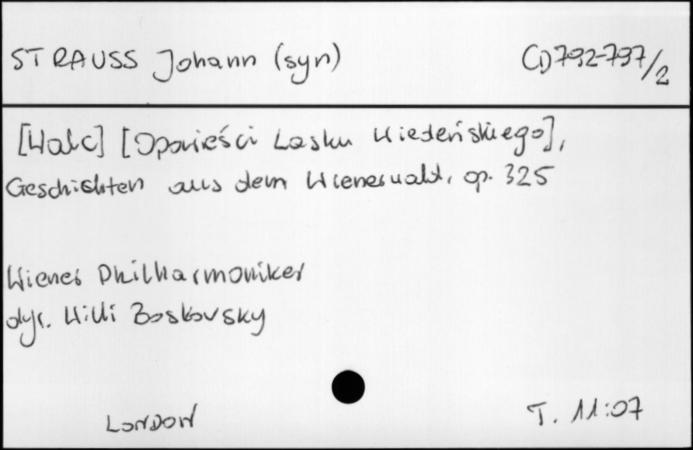 STRAUSS Johann (syn) CD792-797/2
[Walc] [Opowieści Lasku Wiedeńskiego],
Geschichten aus dem Wienerwald, op. 325
Wiener Philharmoniker
dyr. Willi Boskovsky
LONDON T. 11:07